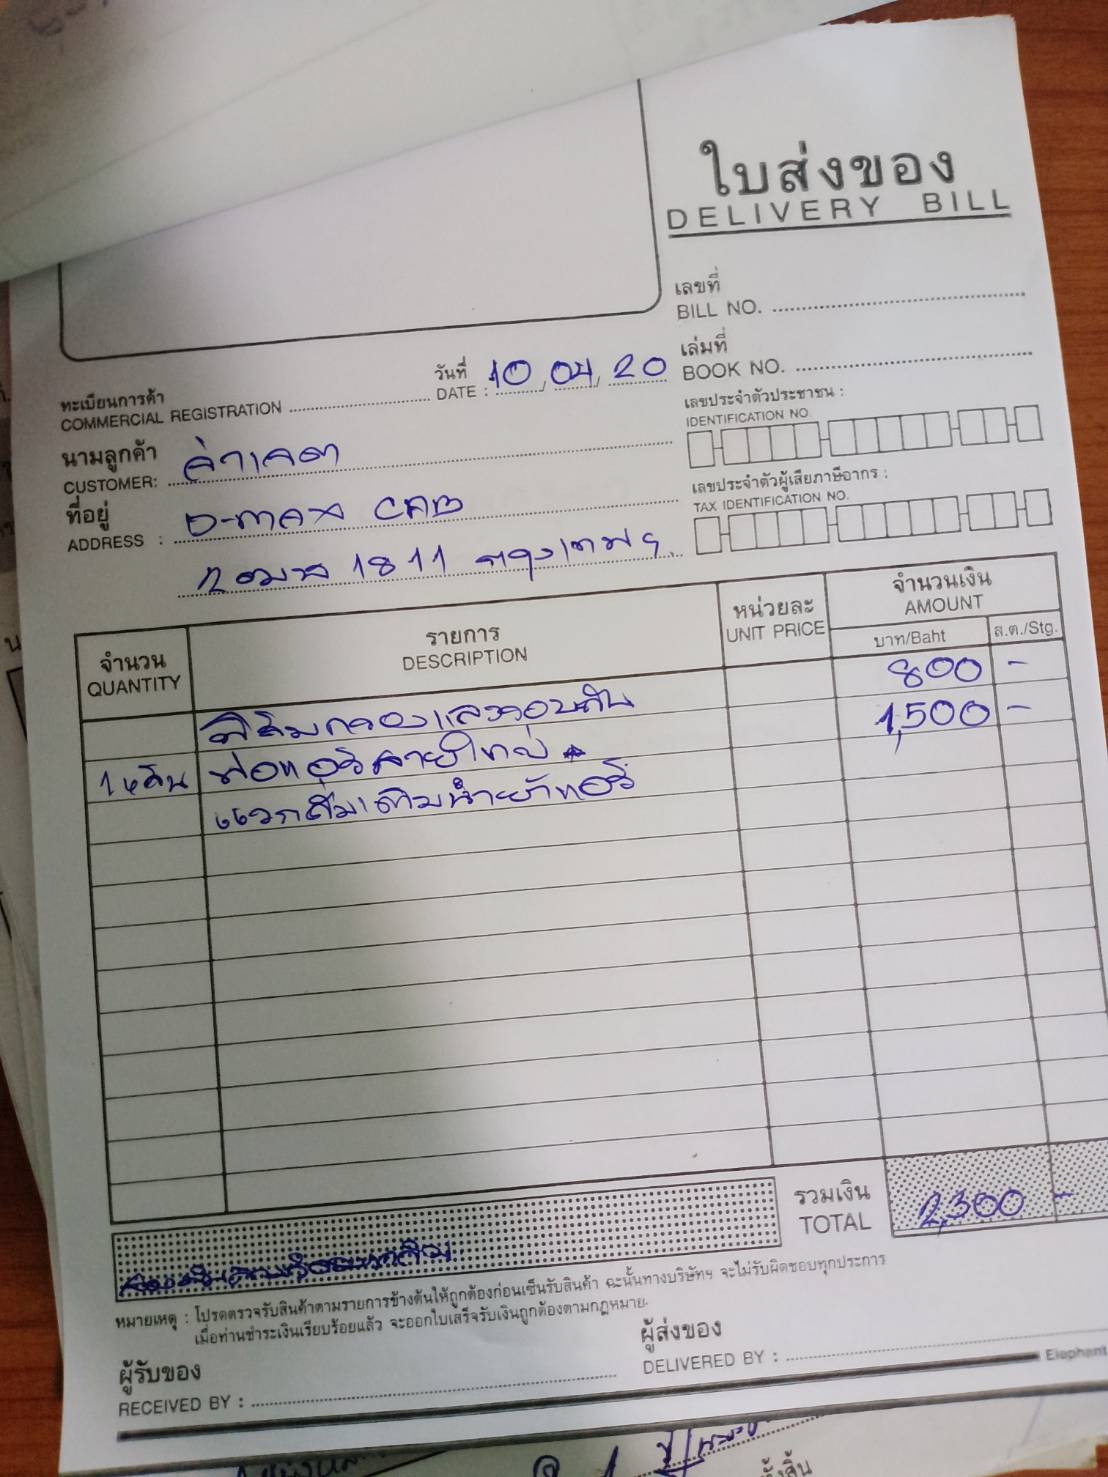 ใบส่งของ
DELIVERY BILL
เลขที่
BILL NO.
เล่มที่
BOOK NO.
วันที่
DATE : 10, 04, 20
ทะเบียนการค้า
COMMERCIAL REGISTRATION
เลขประจำตัวประชาชน :
IDENTIFICATION NO.
นามลูกค้า
CUSTOMER:
เลขประจำตัวผู้เสียภาษีอากร :
TAX IDENTIFICATION NO.
ที่อยู่
ADDRESS : D-max CAB
1811 กรุงเทพฯ
จำนวน
QUANTITY
รายการ
DESCRIPTION
หน่วยละ
UNIT PRICE
จำนวนเงิน
AMOUNT
บาท/Baht
ส.ต./Stg.
ฟิล์มกรองแสงรอบคัน 800 -
ท่อแอร์สายใหญ่ 1,500 -
แวกส์มเติมน้ำยาแอร์
รวมเงิน
TOTAL
2,300 -
หมายเหตุ : โปรดตรวจรับสินค้าตามรายการข้างต้นให้ถูกต้องก่อนเซ็นรับสินค้า ฉะนั้นทางบริษัทฯ จะไม่รับผิดชอบทุกประการ
เมื่อท่านชำระเงินเรียบร้อยแล้ว จะออกใบเสร็จรับเงินถูกต้องตามกฎหมาย.
ผู้รับของ
RECEIVED BY :
ผู้ส่งของ
DELIVERED BY :
Elephant